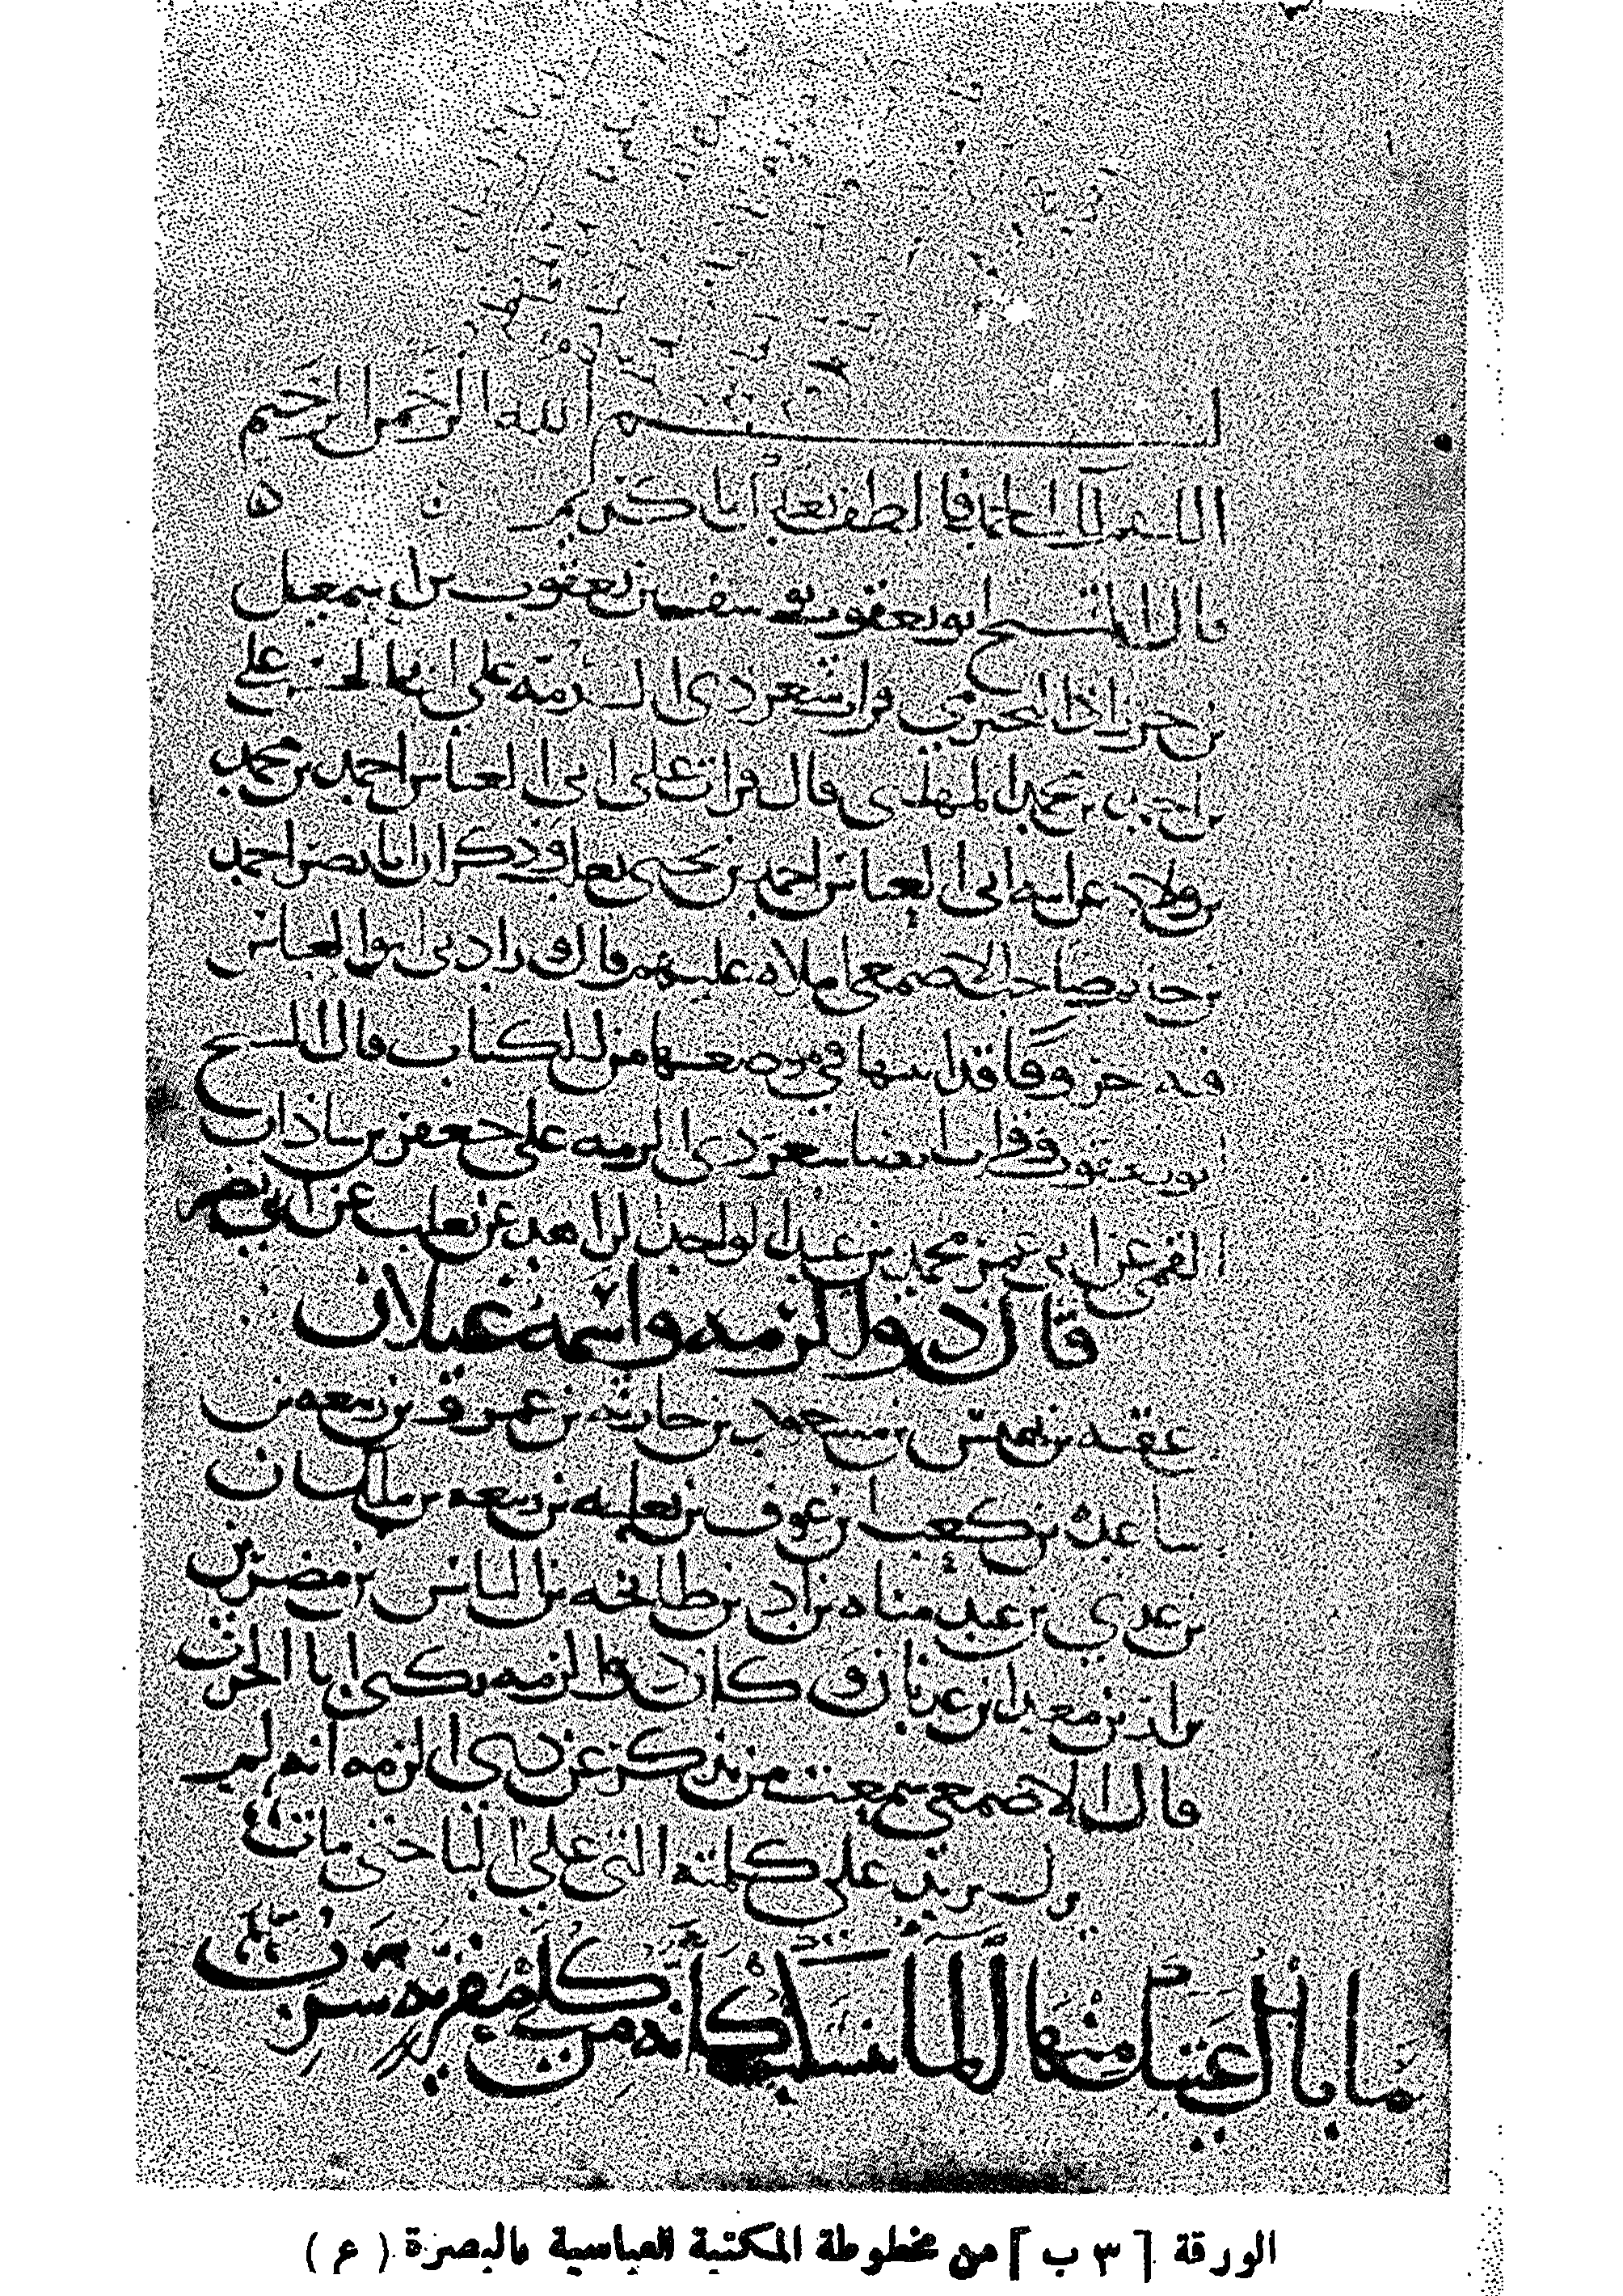 بسم الله الرحمن الرحيم
اللهم لك الحمد فالطف بعلي يا كريم
قال الشيخ ابو يعقوب يوسف بن يعقوب بن اسمعيل
بن خرزاذ النجيرمي قرات شعر ذي الرمة على ابي الحسين علي
بن احمد بن محمد المهلبي قال قرات على ابي العباس احمد بن محمد
بن ولاد عن ابيه ابي العباس احمد بن يحيى ثعلب وذكر ان ابا نصر احمد
بن حاتم صاحب الاصمعي املاه عليهم قال وزادني ابو العباس
فيه حروفا قد اثبتها في موضعها من الكتاب قال الشيخ
ابو يعقوب وقرات ايضا شعر ذي الرمة على جعفر بن شاذان
القمي عن ابي عمر محمد بن عبد الواحد الزاهد عن ثعلب عن ابي نصر
قال ذو الرمة واسمه غيلان
عقبة بن بهيش بن مسعود بن حارثة بن عمرو بن ربيعة بن
ساعدة بن كعب بن عوف بن ثعلبة بن ربيعة بن ملكان
بن عدي بن عبد مناة بن اد بن طابخة بن الياس بن مضر بن
نزار بن معد بن عدنان وكان ذو الرمة يكنى ابا الحرث
قال الاصمعي سمعت من يذكر عن ذي الرمة انه لم
يزل يزيد على كلمته التي على البا حتى مات
ما بال عينك منها الماء ينسكب كانه من كلى مفرية سرب
الورقة [ ٣ ب ] من مخطوطة المكتبة العباسية بالبصرة ( ع )